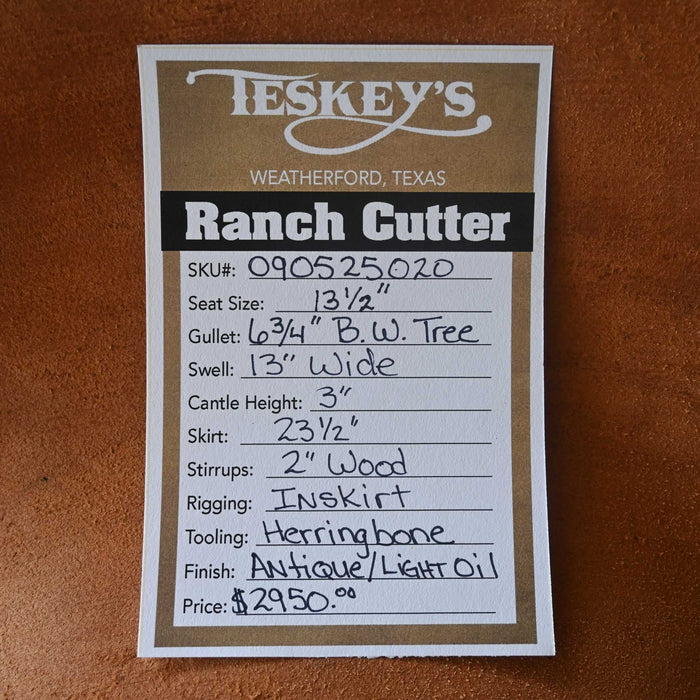 TESKEY'S
WEATHERFORD, TEXAS
Ranch Cutter
SKU#: 090525020
Seat Size: 13 1/2"
Gullet: 6 3/4" B.W. Tree
Swell: 13" Wide
Cantle Height: 3"
Skirt: 23 1/2"
Stirrups: 2" Wood
Rigging: Inskirt
Tooling: Herringbone
Finish: Antique/Light Oil
Price: $2950.00